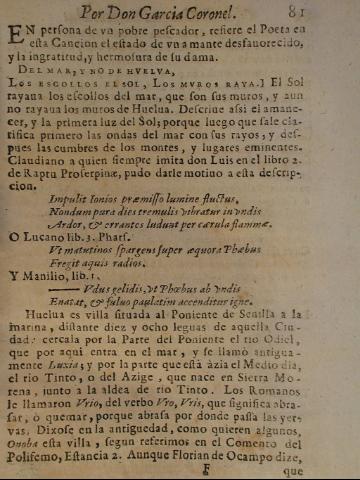 Por Don Garcia Coronel. 81
EN persona de vn pobre pescador, refiere el Poeta en
esta Cancion el estado de vn amante desfauorecido,
y la ingratitud, y hermosura de su dama.
DEL MAR, Y NO DE HVELVA,
LOS ESCOLLOS EL SOL, LOS MVROS RAYA.] El Sol
rayana los escollos del mar, que son sus muros, y aun
no rayaua los muros de Huelua. Descriue assi el amane-
cer, y la primera luz del Sol; porque luego que sale cla-
rifica primero las ondas del mar con sus rayos, y des-
pues las cumbres de los montes, y lugares eminentes.
Claudiano a quien siempre imita don Luis en el libro 2.
de Raptu Proserpinæ, pudo darle motiuo a esta descrip-
cion.
Impulit Ionios præmisso lumine fluctus,
Nondum pura dies tremulis vibratur in vndis
Ardor, & errantes ludunt per cærula flammæ.
O Lucano lib. 3. Phars.
Vt matutinos spargens super æquora Phœbus
Fregit aquis radios.
Y Manilio, lib. 1.
—— Vdus gelidis, vt Phœbus ab vndis
Enatat, & fuluo paulatim accenditur igne.
Huelua es villa situada al Poniente de Seuilla a la
marina, distante diez y ocho leguas de aquella Ciu-
dad: cercala por la Parte del Poniente el rio Odiel,
que por aqui entra en el mar, y se llamò antigua-
mente Luxia; y por la parte que està àzia el Medio dia,
el rio Tinto, o del Azige, que nace en Sierra Mo-
rena, junto a la aldea de rio Tinto. Los Romanos
le llamaron Vrio, del verbo Vro, Vris, que significa abra-
sar, ò quemar, porque abrasa por donde passa las yer-
vas. Dixose en la antiguedad, como quieren algunos,
Onoba esta villa, segun referimos en el Comento del
Polifemo, Estancia 2. Aunque Florian de Ocampo dize,
F que